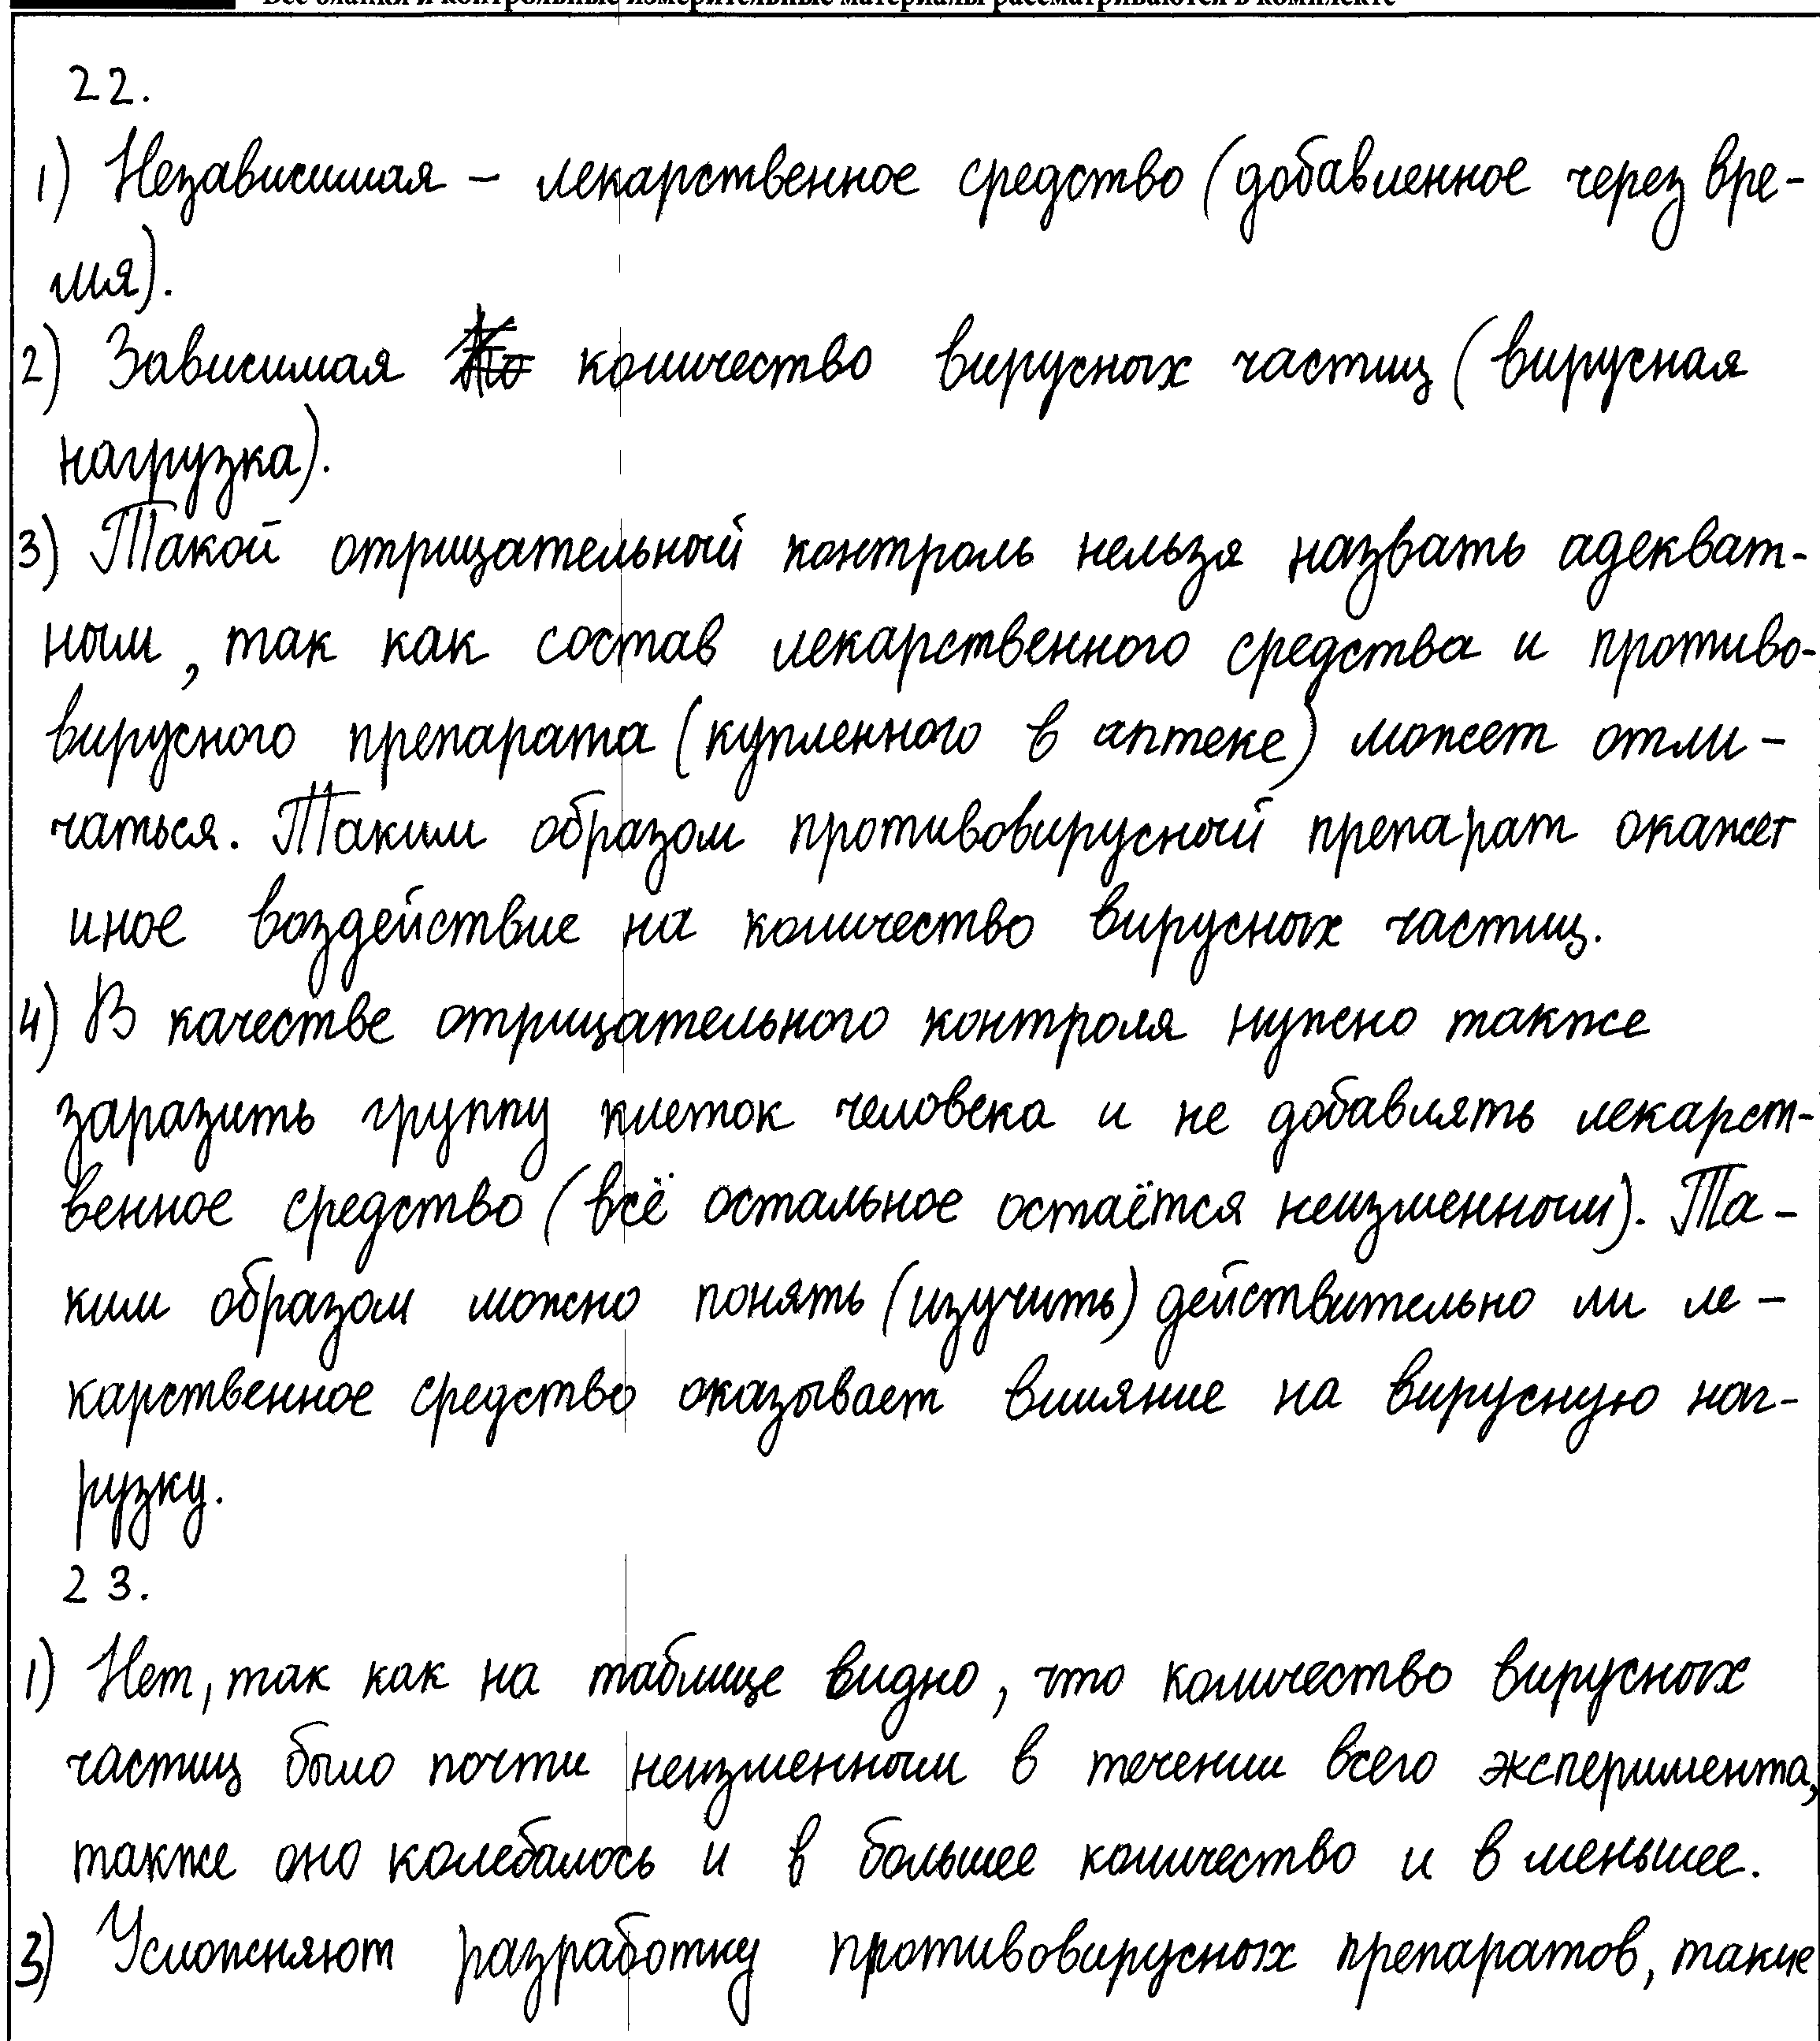 Все бланки и контрольные измерительные материалы рассматриваются в комплекте
22.
1) Независимая – лекарственное средство (добавленное через вре-
мя).
2) Зависимая количество вирусных частиц (вирусная
нагрузка).
3) Такой отрицательный контроль нельзя назвать адекват-
ным, так как состав лекарственного средства и противо-
вирусного препарата (купленного в аптеке) может отли-
чаться. Таким образом противовирусный препарат окажет
иное воздействие на количество вирусных частиц.
4) В качестве отрицательного контроля нужно также
заразить группу клеток человека и не добавлять лекарст-
венное средство (всё остальное остаётся неизменным). Та-
ким образом можно понять (изучить) действительно ли ле-
карственное средство оказывает влияние на вирусную наг-
рузку.
23.
1) Нет, так как на таблице видно, что количество вирусных
частиц было почти неизменным в течении всего эксперимента,
также оно колебалось и в большее количество и в меньшее.
3) Усложняют разработку противовирусных препаратов, такие